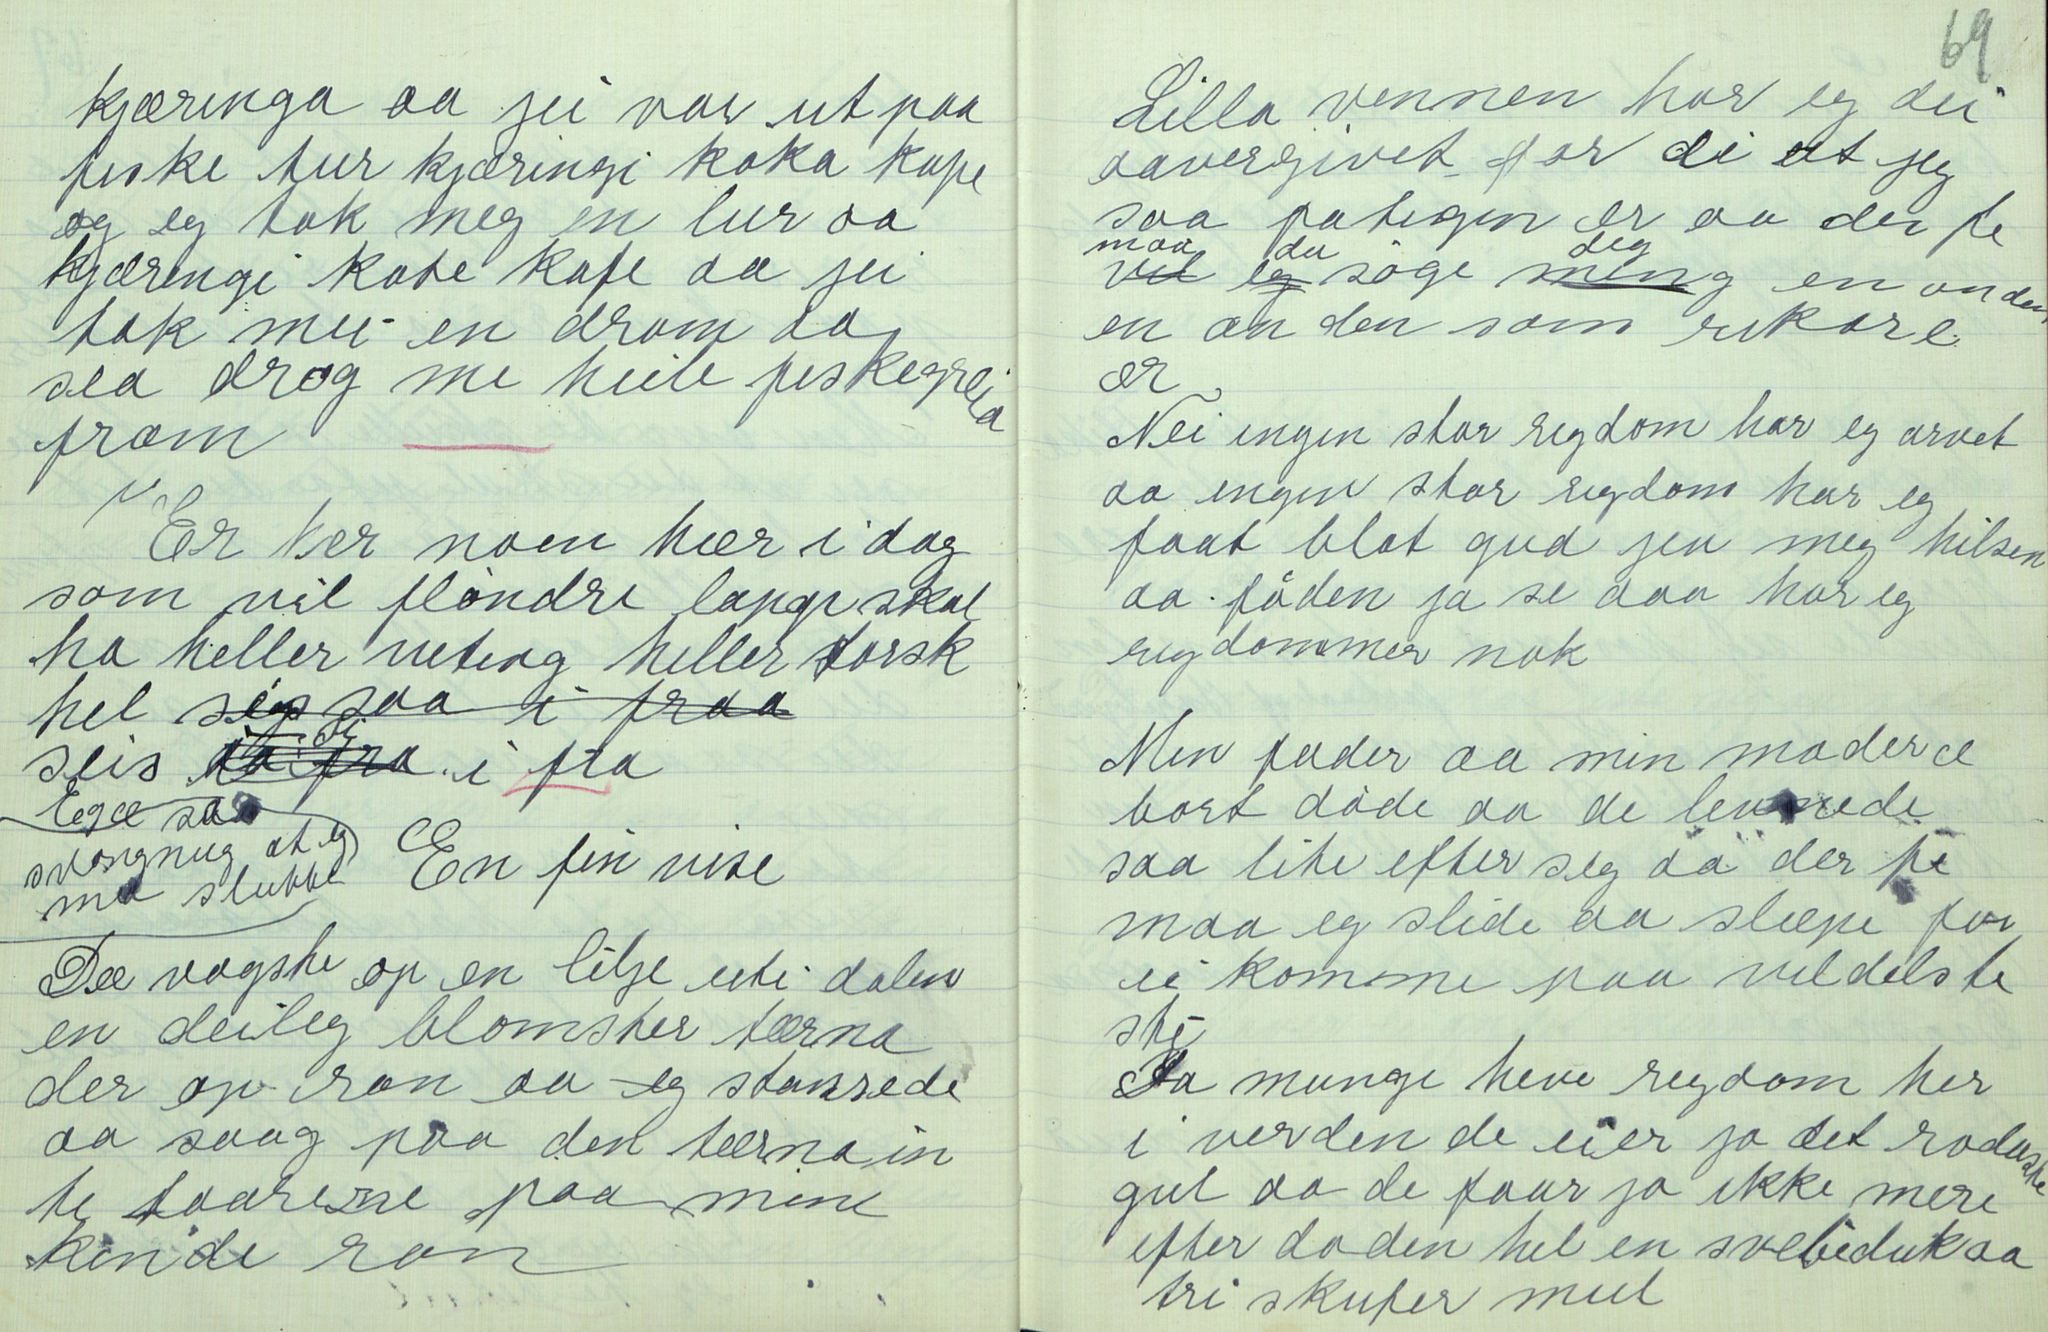 kjæringa aa jei var ut paa
fiske tur kjæringi koka kafe
og eg tok meg en lur aa
kjæringi kote kafe aa jei
tok mei en dram aa
sea drog me heile fiskegreia
fram
Er her noen hær i dag
som vil flöndre lange skal
ha heller heller torsk
hel seis saa i fraa
seis i fra
saa
at eg
ma slubbe
En fin vise
Dæ vogste op en lilje uti dalen
en deileg blomster tærna
der op ran aa eg stansede
aa saag paa den tærna in
te taarerne paa mine
kinde ran
69
Lilla vennen har eg dei
aavergivet for di at jeg
saa fatigen er aa der fe
maa du deg
vil eg söge ming en anden
en anden som rikare
ær
Nei ingen stor regdom har eg arvet
aa ingen stor regdom har eg
faat blot gud jen meg hilsen
aa föden ja se daa har eg
regdommer nok
Min fader aa min moder æ
bort döde aa de levnede
saa lite efter seg aa der fe
maa eg slide aa slæpe for
ei komme paa vildelste
sti
Ja mange heve regdom her
i verden de eier ja det rodeste
gul aa de faar ja ikke mere
efter doden hel en svebeduk aa
tri skufer mul